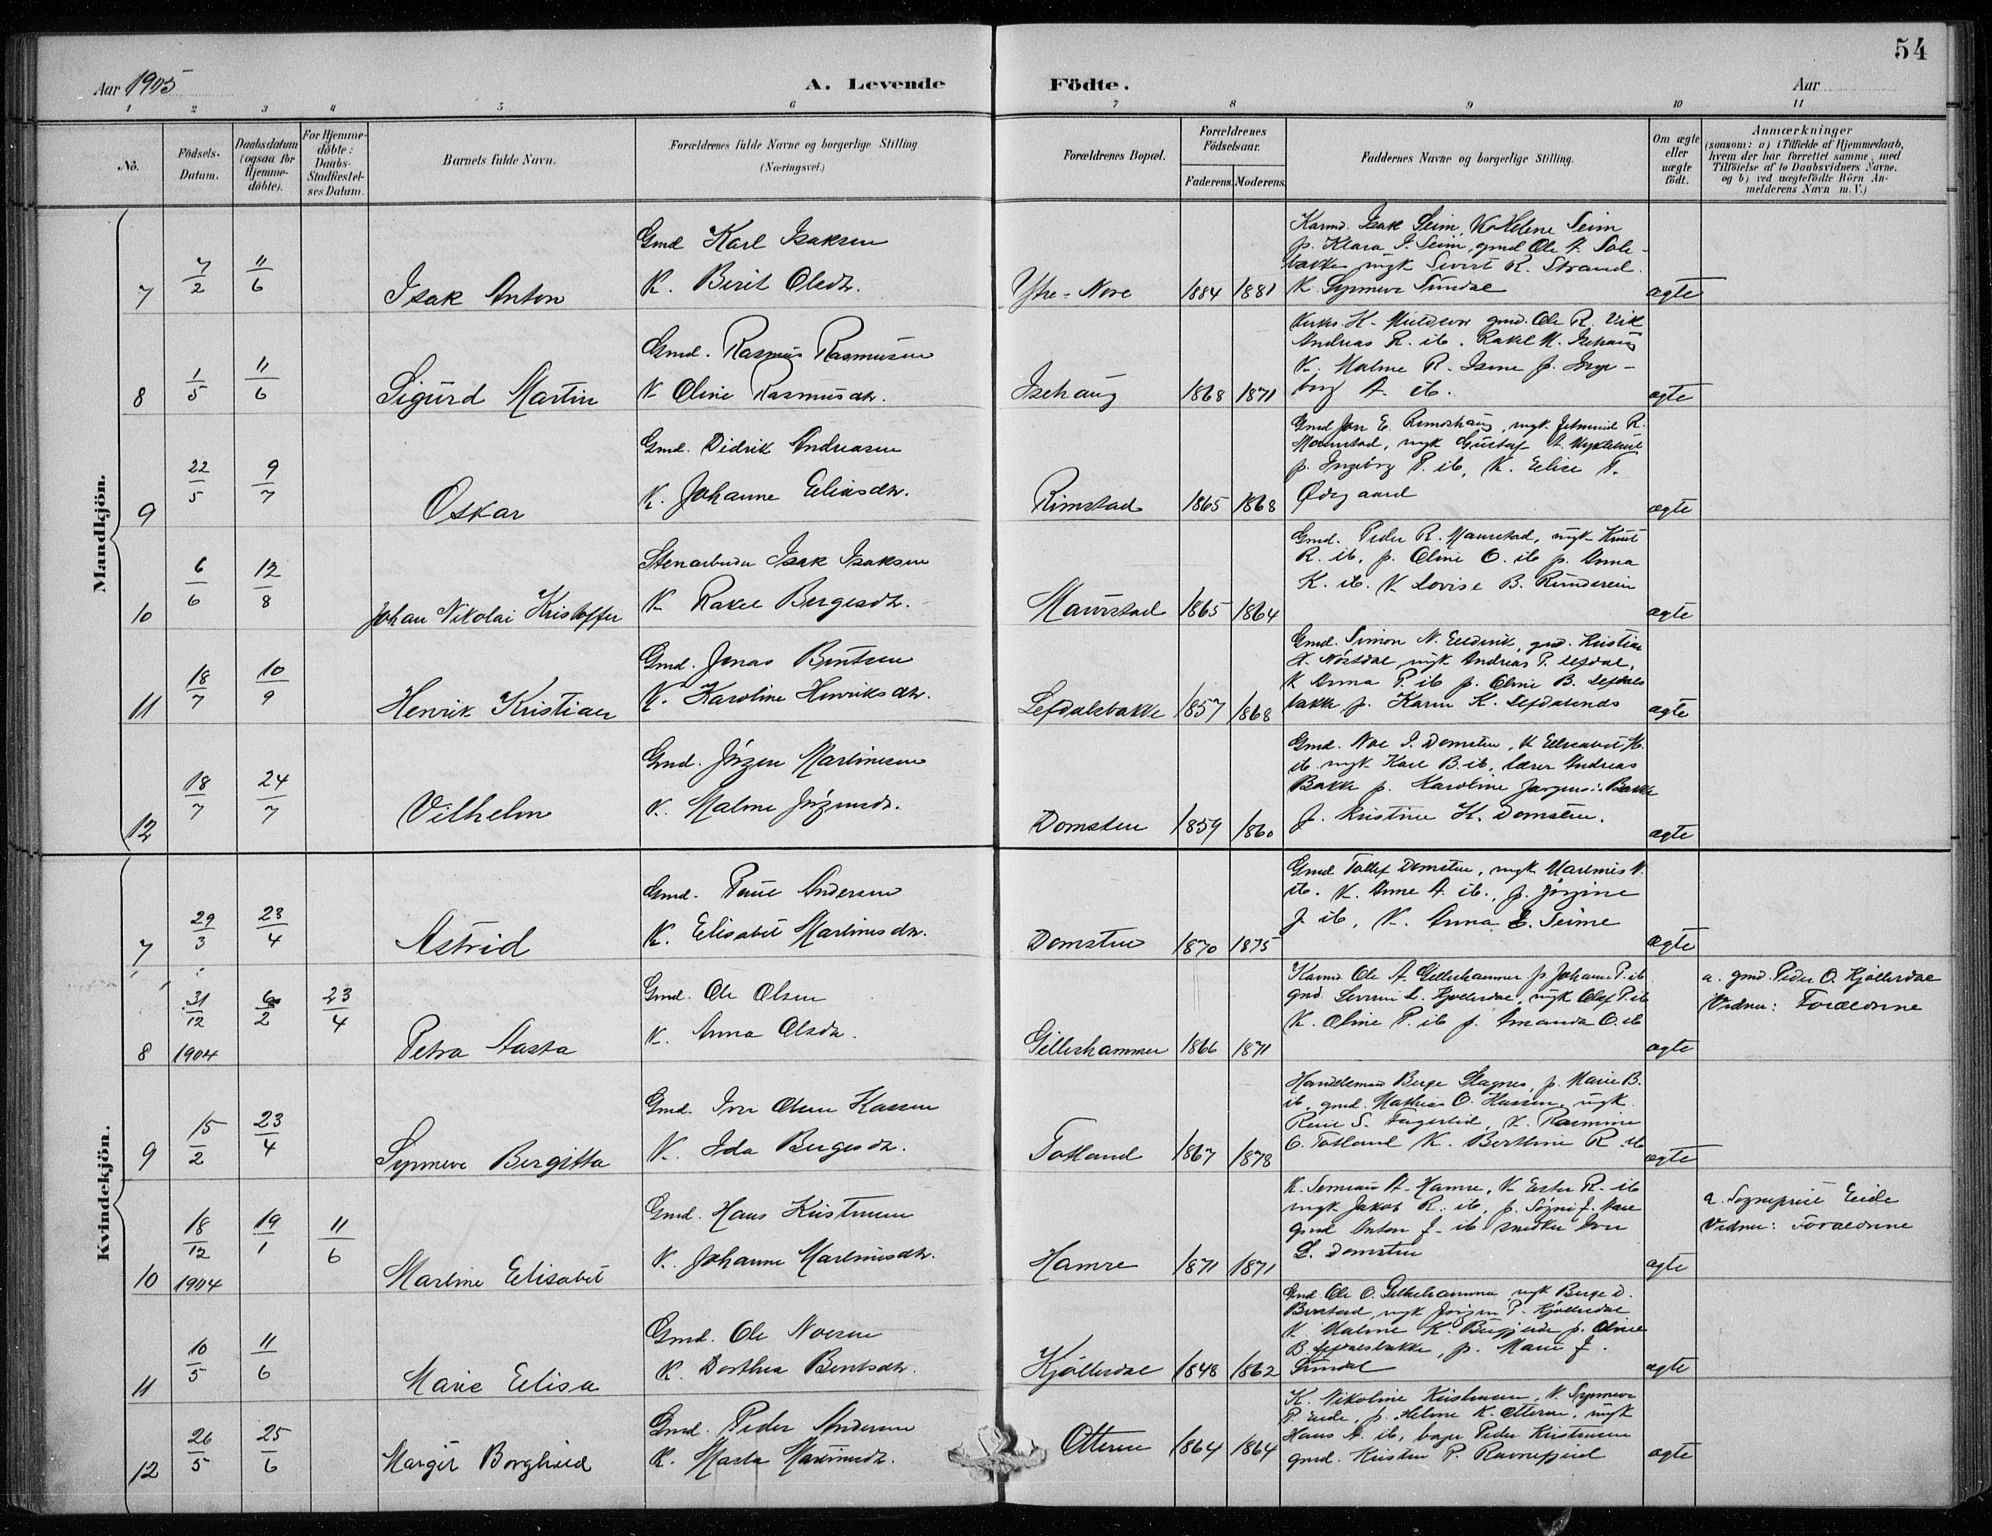 54
Aar 1905
A. Levende
Födte.
Aar
1 2 3 4 5 6 7 8 9 10 11
No.
Födsels-Datum.
Daabsdatum (ogsaa for Hjemme-döbte).
For Hjemme-döbte: Daabs-Stadfæstel-ses Datum.
Barnets fulde Navn.
Forældrenes fulde Navne og borgerlige Stilling.
(Næringsvei.)
Forældrenes Bopæl.
Forældrenes Födselsaar.
Faderens. Moderens.
Faddernes Navne og borgerlige Stilling.
Om ægte eller uægte födt.
Anmærkninger
(saasom: a) i Tilfælde af Hjemmedaab,
hvem der har forrettet samme, med
Tilföielse af to Daabsvidners Navne.
og b) ved uægtefödte Börn An-
melderens Navn m. V.)
Mandkjön.
7 7/2 11/6 Isak Anton
Gmd Karl Isaksen
K. Berit Olsdtr.
Ytre-Nore 1884 1881
Karmd. Isak Seim, K. Helene Seim
p. Klara I. Seim, gmd Ole A. Sole-
bakke ungk Sivert R. Strand
K. Synneve Sundal
ægte
8 1/5 11/6 Sigurd Martin
Gmd. Rasmus Rasmusen
K. Oline Rasmusdtr.
Isehaug 1868 1871
gmd. Ole R. Vik
Andreas R. ib. Rakel M. Isehaug
K. Malene R. Isene p. Inge-
borg A. ib.
ægte
9 22/5 9/7 Oskar
Gmd. Didrik Andreasen
K. Johanne Eliasdtr.
Rimstad 1865 1868
Gmd Jon E. Rimshaug, ungk. R.
Maurstad, ungk Gustaf A.
p. Ingeborg P. ib, K. Elise T.
Ødegaard
ægte
10 6/6 12/8 Johan Nikolai Kristoffer
Stenarbeider Isak Isaksen
K. Rakel Bergesdtr.
Maurstad 1865 1864
Gmd. Peder R. Maurstad, ungk Knut
R. ib, p. Oline O. ib p. Anna
K. ib. K. Lovise B. Runderein
ægte
11 18/7 10/9 Henrik Kristian
Gmd. Jonas Bentsen
K. Karoline Henriksdtr.
Lefdalsbakke 1857 1868
Gmd. Simon N. Eldevik, gmd. Kristian
A. Nosdal, ungk Andreas P. Lefdal,
K Anna P. ib p. Oline B. Lefdals
bakke p. Karen K. Lefdalsnes
ægte
12 18/7 24/7 Vilhelm
Gmd. Jörgen Martinesen
K. Malene Jörgensdtr.
Domsten 1859 1860
Gmd. Noe J. Domsten, K Elisabet M.
ib. ungk Karl B. ib, lærer Andreas
Bakke p. Karoline Bakke
p. Kristine K. Domsten.
ægte
Kvindekjön.
7 29/3 23/4 Astrid
Gmd. Andersen
K. Elisabet Martinusdtr.
Domsten 1870 1875
Gmd Tollef Domsten, ungk Martinus N.
ib. K. Anne A. ib., p. Jörgine
J ib, K. Anna E. Seime
ægte
8 31/12 1904 6/2 23/4 Petra Aasta
Gmd. Ole Olsen
K. Anna Olsdtr.
Gilleshammer 1866 1871
Karmd Ole A. Gilleshammer p. Johanne P. ib
gmd. L. Kjöllesdal, ungk Olaf P. ib
K. Oline P. ib p. Amanda O. ib
ægte
a. gmd. Peder O. Kjöllesdal
Vidner: Forældrene
9 15/2 23/4 Synneve Bergitta
Gmd. Iver Olsen
K. Ida Bergesdtr.
Totland 1867 1878
Handelsmand Berge Stagnes, p. Marie B.
ib, gmd. Mathias O. ungk.
S. K. Rasmine
O. Totland K. Berthine R. ib
ægte
10 18/12 1904 19/1 11/6 Martine Elisabet
Gmd. Hans Kristensen
K. Johanne Martinusdtr.
Hamre 1871 1871
K. A. Hamre, K. Ester R. ib
ungk Jakob R. ib, p. Søgni J.
gmd Anton J. ib snedker Iver
L. Domsten
ægte
a. Sogneprest Eide
Vidner: Forældrene
11 10/5 11/6 Marie Elisa
Gmd. Ole Noesen
K. Dorthea Bentsdtr.
Kjöllesdal 1848 1862
Gmd Ole O. Gilleshammer ungk Berge D.
ungk Jörgen P. Kjöllesdal
K. Malene K. p. Oline
B. Lefdalsbakke, p. Marie J.
Sundal
ægte
12 26/5 25/6 Margit Borghild
Gmd. Peder Andersen
K. Marta
Otteren 1864 1864
K. Nikoline Kristensen, K. Synneve
P. Eide, p. Helene K. Otteren, ungk
Hans A. ib, bager Peder Kristensen
gmd. Kristen P. Ravnefjeld
ægte